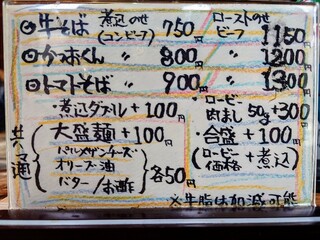 ◎牛そば 煮込のせ(コンビーフ) 750円 ローストのせビーフ 1150
◎かっおくん 〃 800円 〃 1200
◎トマトそば 〃 900円 〃 1300
・煮込ダブル+100円 ・ロービー肉まし50g+300円
共通 大盛麺+100円 ・合盛+100円
パルメザンチーズ オリーブ油 バター/お酢 各50円 (ロービー価格+煮込)
※牛脂は加減可能